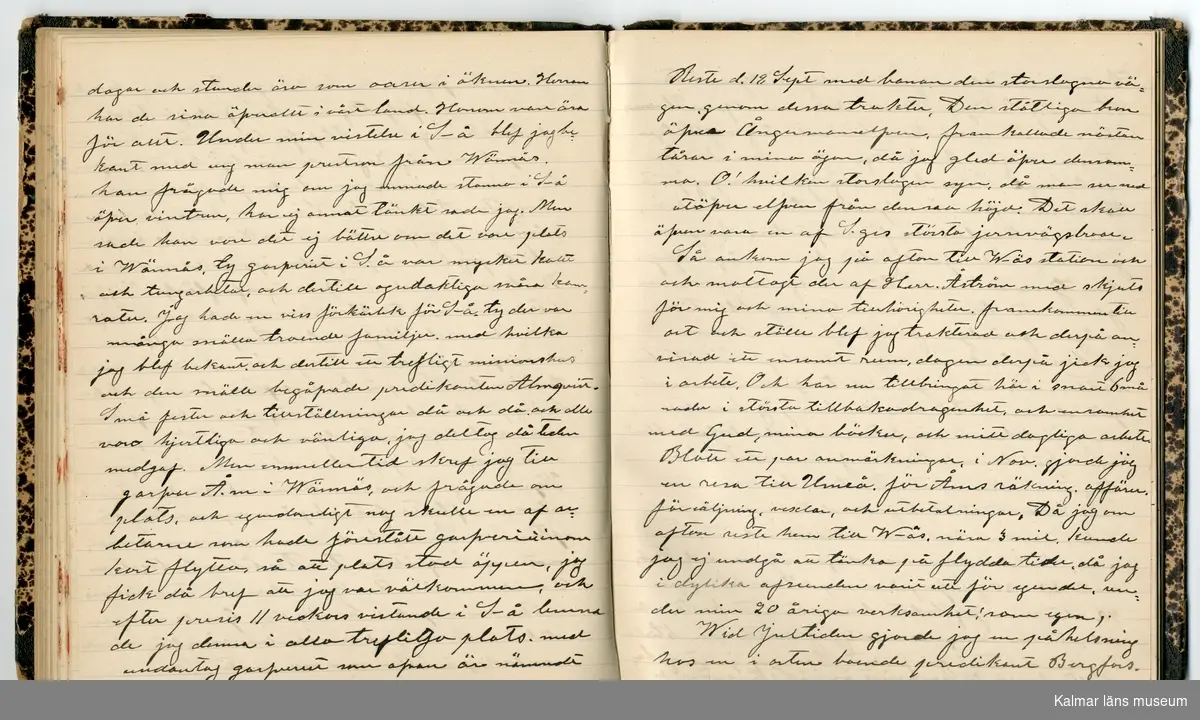 dagar och stunder äro som oaser i öknen. Herren
har de sina öfverallt i vårt land. Honom vare ära
för allt. Under min vistelse i S-å blef jag be-
kant med ung man från Wännäs.
han frågade mig om jag ämnade stanna i S-å
öfver vintern, har ej annat tänkt sade jag. Men
sade han vore det ej bättre om det vore plats
i Wännäs, ty garfveriet i S.å var mycket kallt
och tungarbetat, och dertill ogudaktiga svåra kam-
rater. Jag hade en viss förkärlek för S-å, ty der var
många snälla troende familjer med hvilka
jag blef bekant, och dertill ett trefligt missionshus
och den snälle begåfvade predikanten Almqvist.
Små fester och tillställningar då och då, och alla
voro hjertliga och vänliga, jag deltog då tiden
medgaf. Men emellertid skref jag till
garfvar Å.m i Wännäs, och frågade om
plats, och egendomligt nog skulle en af ar-
betarne som hade förestått garfveriet inom
kort flytta, så att plats stod öppen, jag
fick då bref att jag var välkommen, och
efter precis 11 veckors vistande i S-å lemna
de jag denna i alla trefliga plats. med
undantag garfveriet som ofvan är nämndt
Reste d. 12 Sept med banan den storslagna vä-
gen, genom dessa trakter, Den ståtliga bron
öfver Ångermanelfven, framkallade nästan
tårar i mina ögon, då jag gled öfver densam-
ma. O! hvilken storslagen syn, då man ser ned
utöfver elfven från denna höjd. Det skall
äfven vara en af S.ges största jernvägsbroar.
Så ankom jag på afton till W-äs station och
och mottogs der af Herr. Åström med skjuts
för mig och mina tillhörigheter. framkommen till
ort och ställe blef jag trakterad och derpå an-
visad ett ensamt rum, dagen derpå gick jag
i arbete, Och har nu tillbringat här i snart 6 må
nader i största tillbakadragenhet, och ensamhet
med Gud, mina böcker, och mitt dagliga arbete.
Blott ett par anmärkningar, i Nov. gjorde jag
en resa till Umeå. för Åms räkning. affärer.
försäljning, vexlar, och utbetalningar, Då jag om
afton reste hem till W-äs. nära 3 mil, kunde
jag ej undgå att tänka på flydda tider, då jag
i dylika afseenden varit ute för egendet, un-
der min 20 åriga verksamhet! som egen,.
Wid Jultiden gjorde jag en påhelsning
hos en i orten boende predikant Bergfors.
Kalmar läns museum